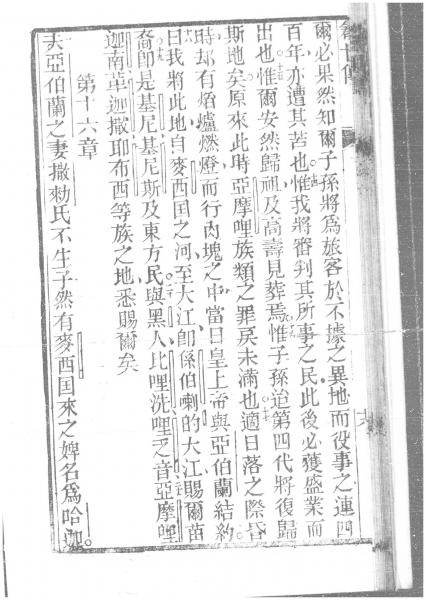 爾必果然知爾子孫將爲旅客於不據之異地而役事之連四
百年亦遭其苦也惟我將審判其所事之民此後必獲盛業而
出也惟爾安然歸祖及高壽見葬焉惟子孫迨第四代將復歸
斯地矣原來此時亞摩哩族類之罪戾未滿也適日落之際昏
時却有焰爐燃燈而行肉塊之中當日皇上帝與亞伯蘭結約
曰我將此地自麥西国之河至大江卽係伯喇的大江賜爾苗
裔卽是基尼基尼斯及東方民與黑人比哩洗哩乏音亞摩哩
迦南革迦撒耶布西等族之地悉賜爾矣
第十六章
夫亞伯蘭之妻撒勑氏不生子然有麥西国來之婢名爲哈迦。